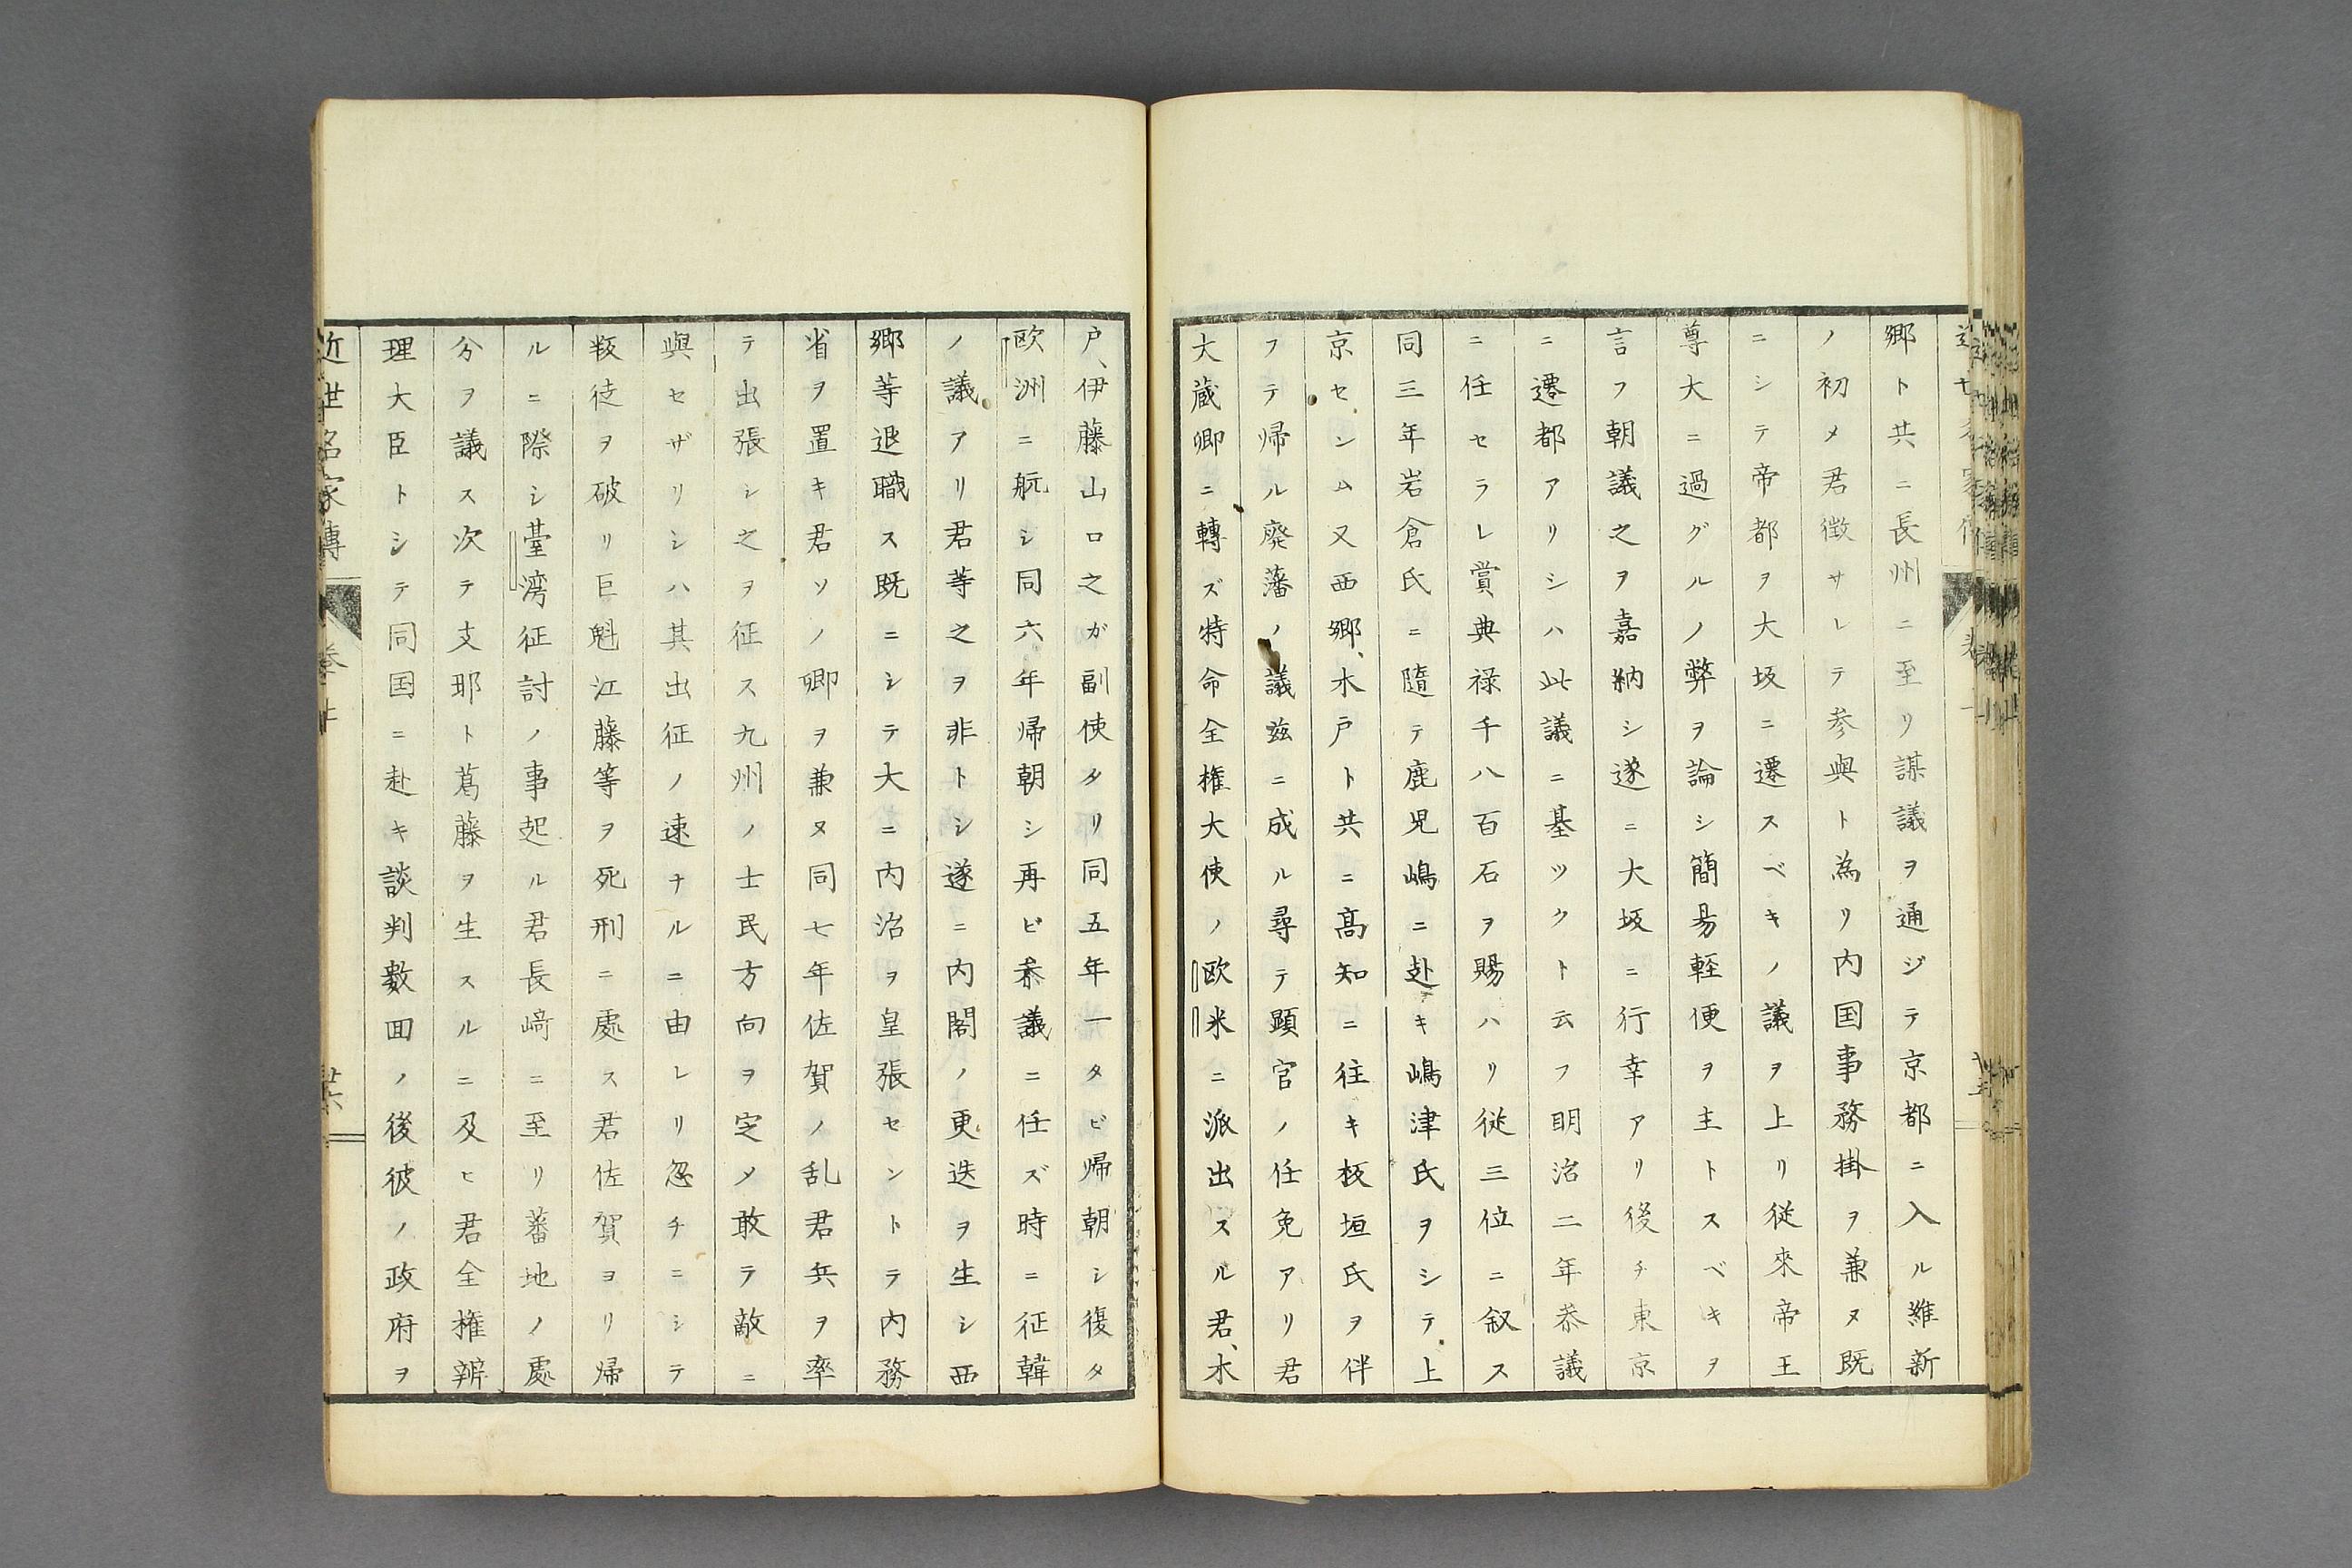 郷ト共ニ長州ニ至リ謀議ヲ通ジテ京都ニ入ル維新
ノ初メ君徴サレテ参與ト為リ内国事務掛ヲ兼ヌ既
ニシテ帝都ヲ大坂ニ遷スベキノ議ヲ上リ従來帝王
尊大ニ過グルノ弊ヲ論シ簡易軽便ヲ主トスベキヲ
言フ朝議之ヲ嘉納シ遂ニ大坂ニ行幸アリ後チ東京
ニ遷都アリシハ此議ニ基ツクト云フ明治二年叅議
ニ任セラレ賞典禄千八百石ヲ賜ハリ従三位ニ叙ス
同三年岩倉氏ニ隨テ鹿児嶋ニ赴キ嶋津氏ヲシテ上
京センム又西郷、木戸ト共ニ髙知ニ往キ板垣氏ヲ伴
フテ帰ル廃藩ノ議茲ニ成ル尋テ顕官ノ任免アリ君
大蔵卿ニ轉ズ特命全権大使ノ欧米ニ派出スル君、木
戸、伊藤山口之ガ副使タリ同五年一タビ帰朝シ復タ
欧洲ニ航シ同六年帰朝シ再ビ叅議ニ任ズ時ニ征韓
ノ議アリ君等之ヲ非トシ遂ニ内閣ノ更迭ヲ生シ西
郷等退職ス既ニシテ大ニ内治ヲ皇張セントテ内務
省ヲ置キ君ソノ卿ヲ兼ヌ同七年佐賀ノ乱君兵ヲ率
テ出張シ之ヲ征ス九州ノ士民方向ヲ定メ敢テ敵ニ
與セザリシハ其出征ノ速ナルニ由レリ忽チニシテ
叛徒ヲ破リ巨魁江藤等ヲ死刑ニ處ス君佐賀ヨリ帰
ルニ際シ臺湾征討ノ事起ル君長﨑ニ至リ蕃地ノ處
分ヲ議ス次テ支耶ト葛藤ヲ生スルニ及ヒ君全権辨
理大臣トシテ同国ニ赴キ談判數回ノ後彼ノ政府ヲ
近世名家傳 卷 廿六